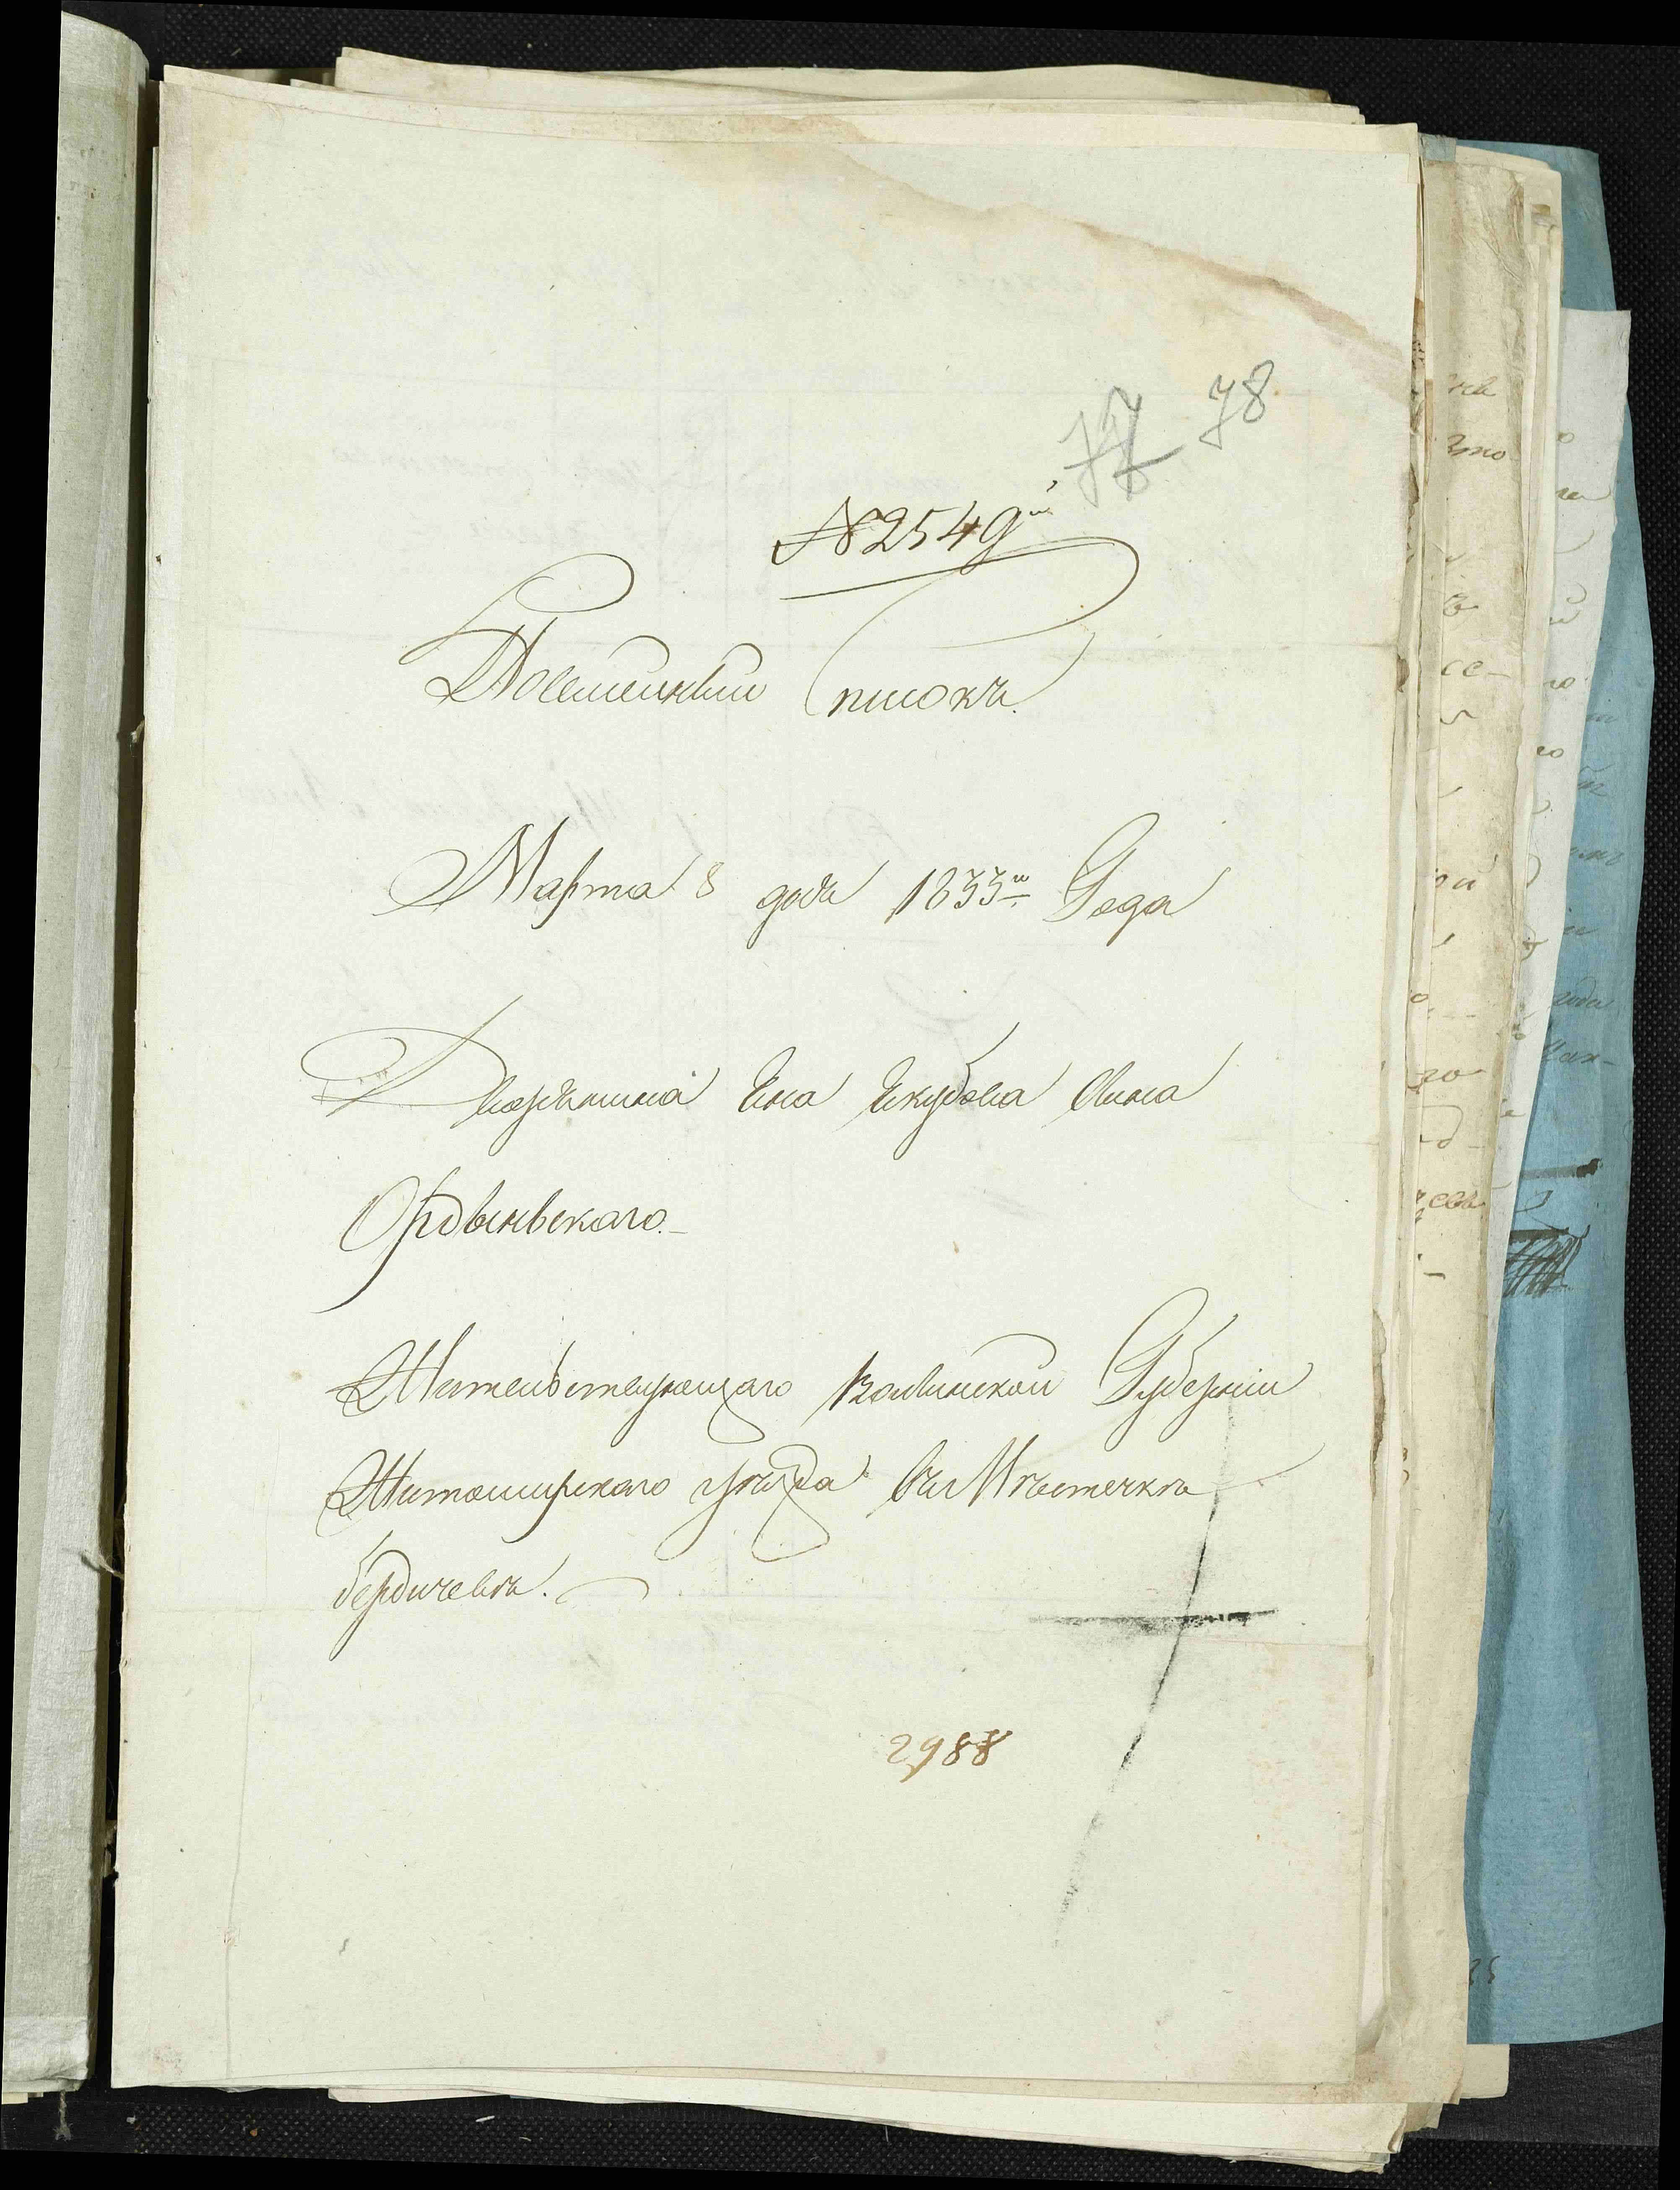 77 78
№ 2549й
Посемейный Списокъ.
Марта 8 дня 1833го Года
Дворянина Яна Якубова Сына
Ордыньскаго.
Жительствующаго Волынской Губерніи
Житомирскаго уѣзда въ Мѣстечкѣ
бердичевѣ.
2988